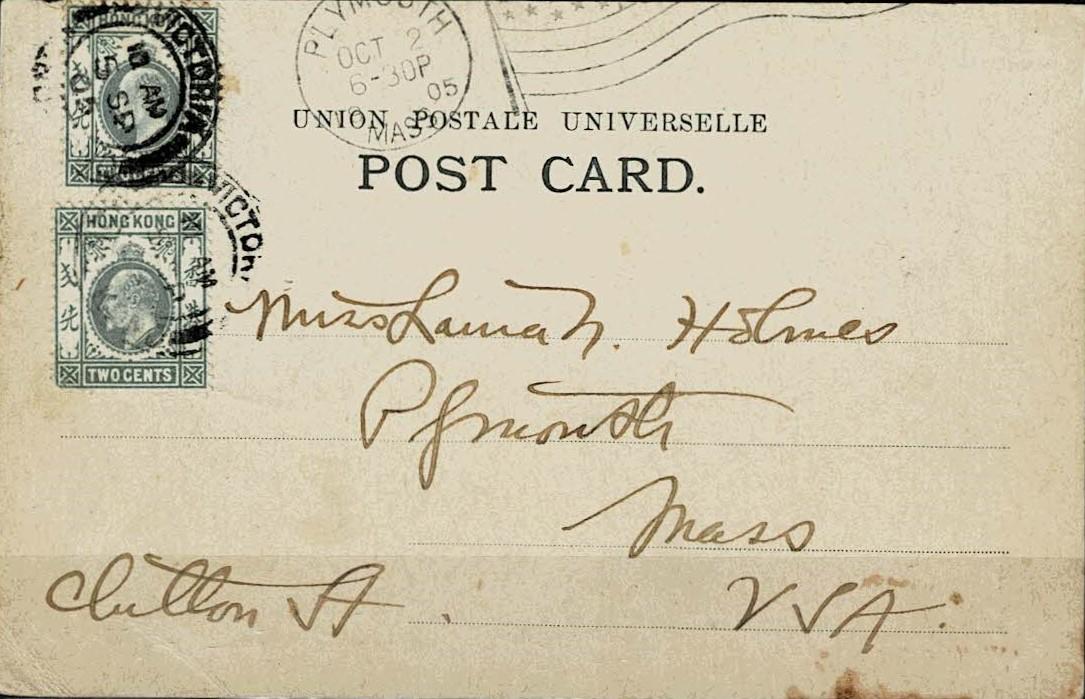 HONG KONG
VICTORIA
10 AM
5 SP
PLYMOUTH
OCT 2
6-30P
05
MASS
UNION POSTALE UNIVERSELLE
POST CARD.
VICTORI
AM
HONG KONG
香
弍先
TWO CENTS
Miss Laura N. Holmes
Plymouth
Mass
Clifton St.
USA.